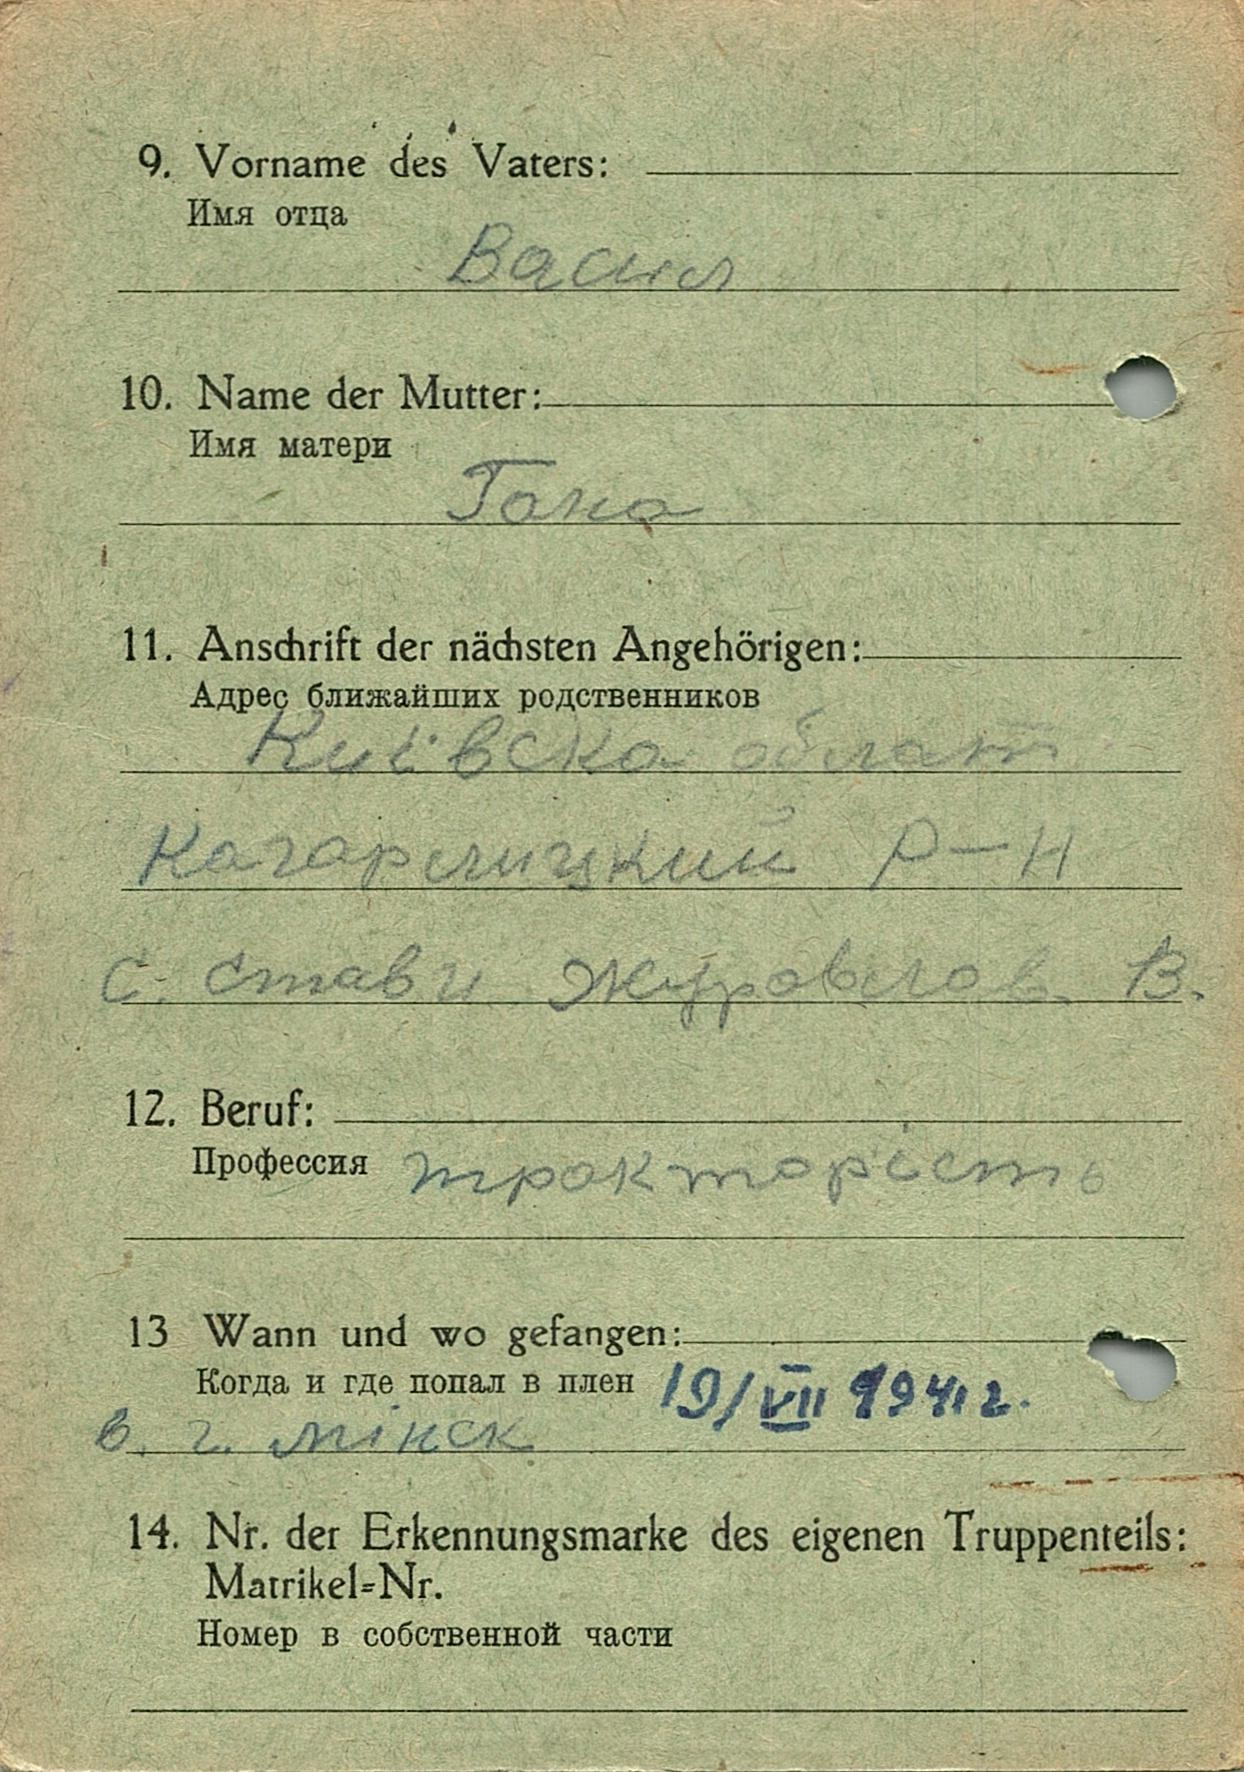 9. Vorname des Vaters:
Имя отца
Васил
10. Name der Mutter:
Имя матери
Гана
11. Anschrift der nächsten Angehörigen:
Адрес ближайших родственников
Київска област
Кагарлицкий р-н
с. Стави Журавлов В.
12. Beruf:
Профессия тракторість
13 Wann und wo gefangen:
Когда и где попал в плен 19/VII 1941 г.
в. г. мінск
14. Nr. der Erkennungsmarke des eigenen Truppenteils:
Matrikel=Nr.
Номер в собственной части